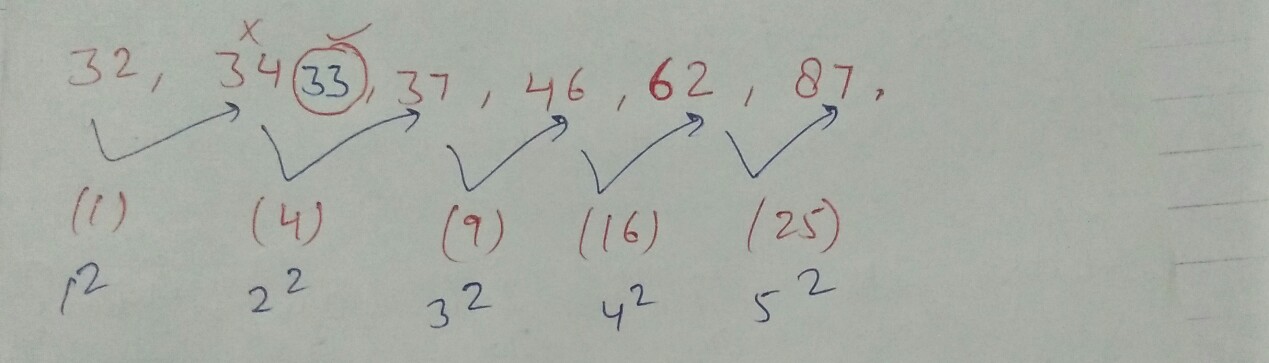 32, 34 33, 37, 46, 62, 87,
(1) (4) (9) (16) (25)
1² 2² 3² 4² 5²